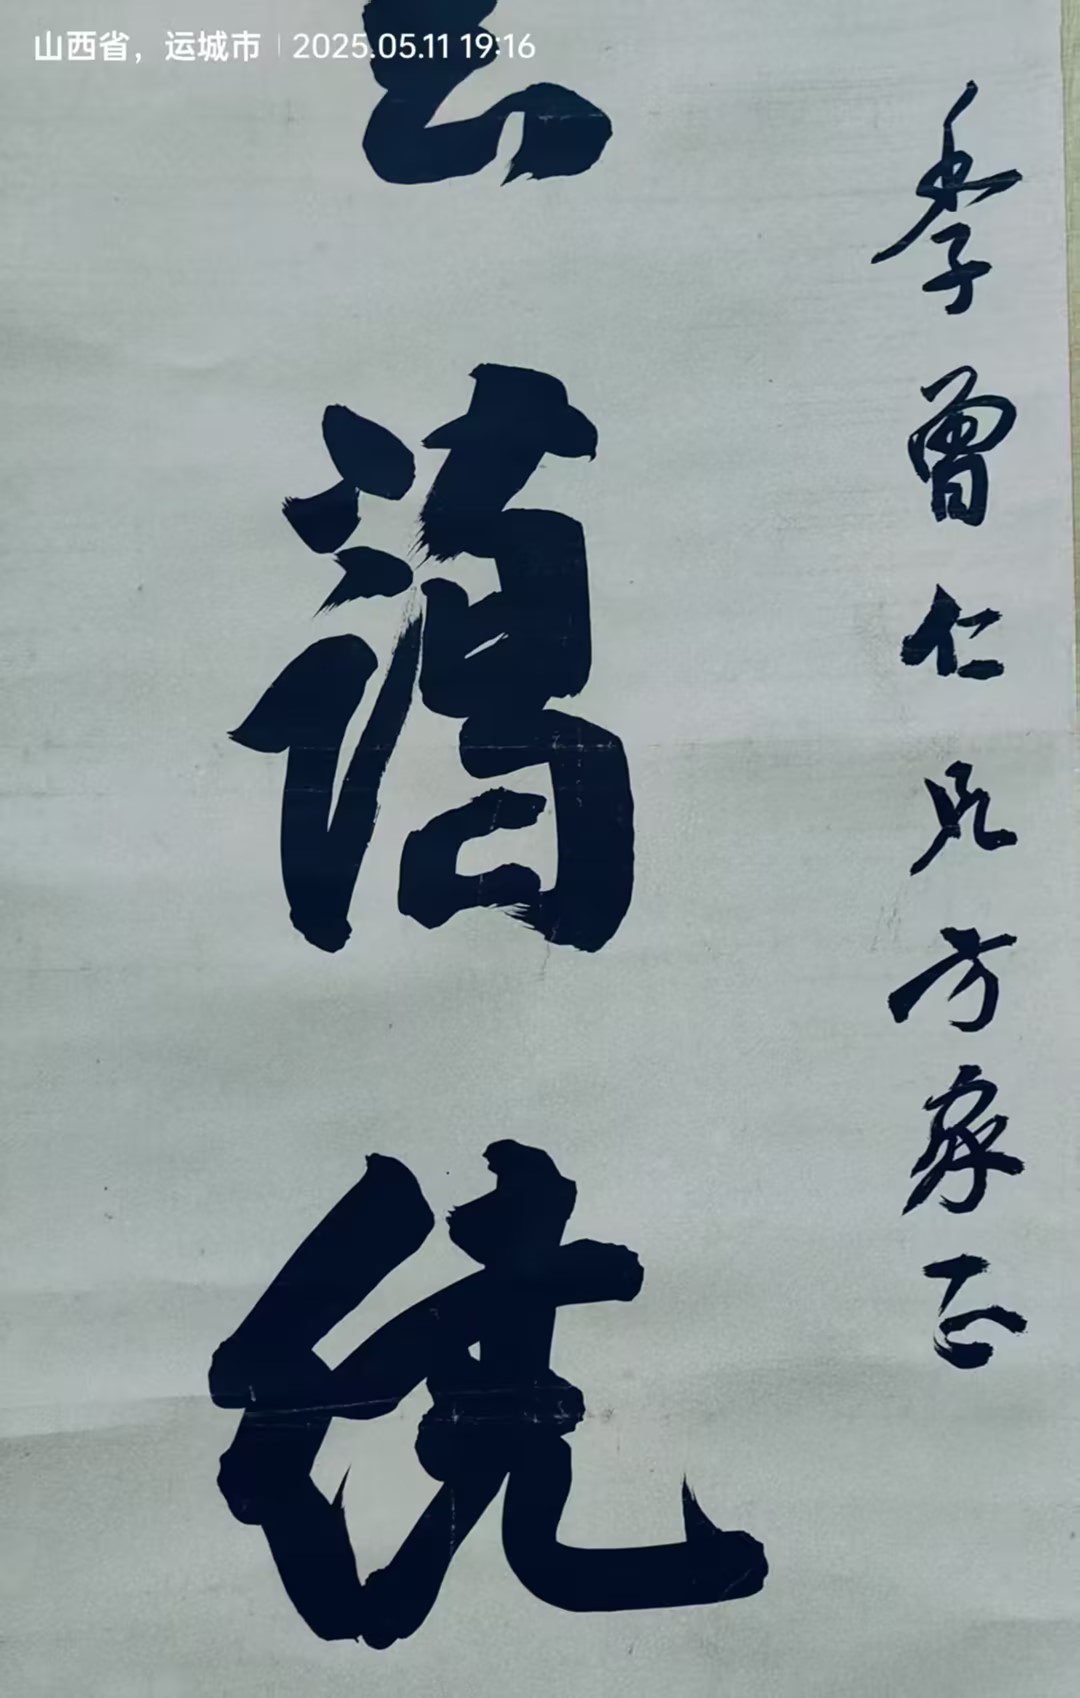 山西省，运城市 | 2025.05.11 19:16
季曾仁兄方家正
云蔼绕